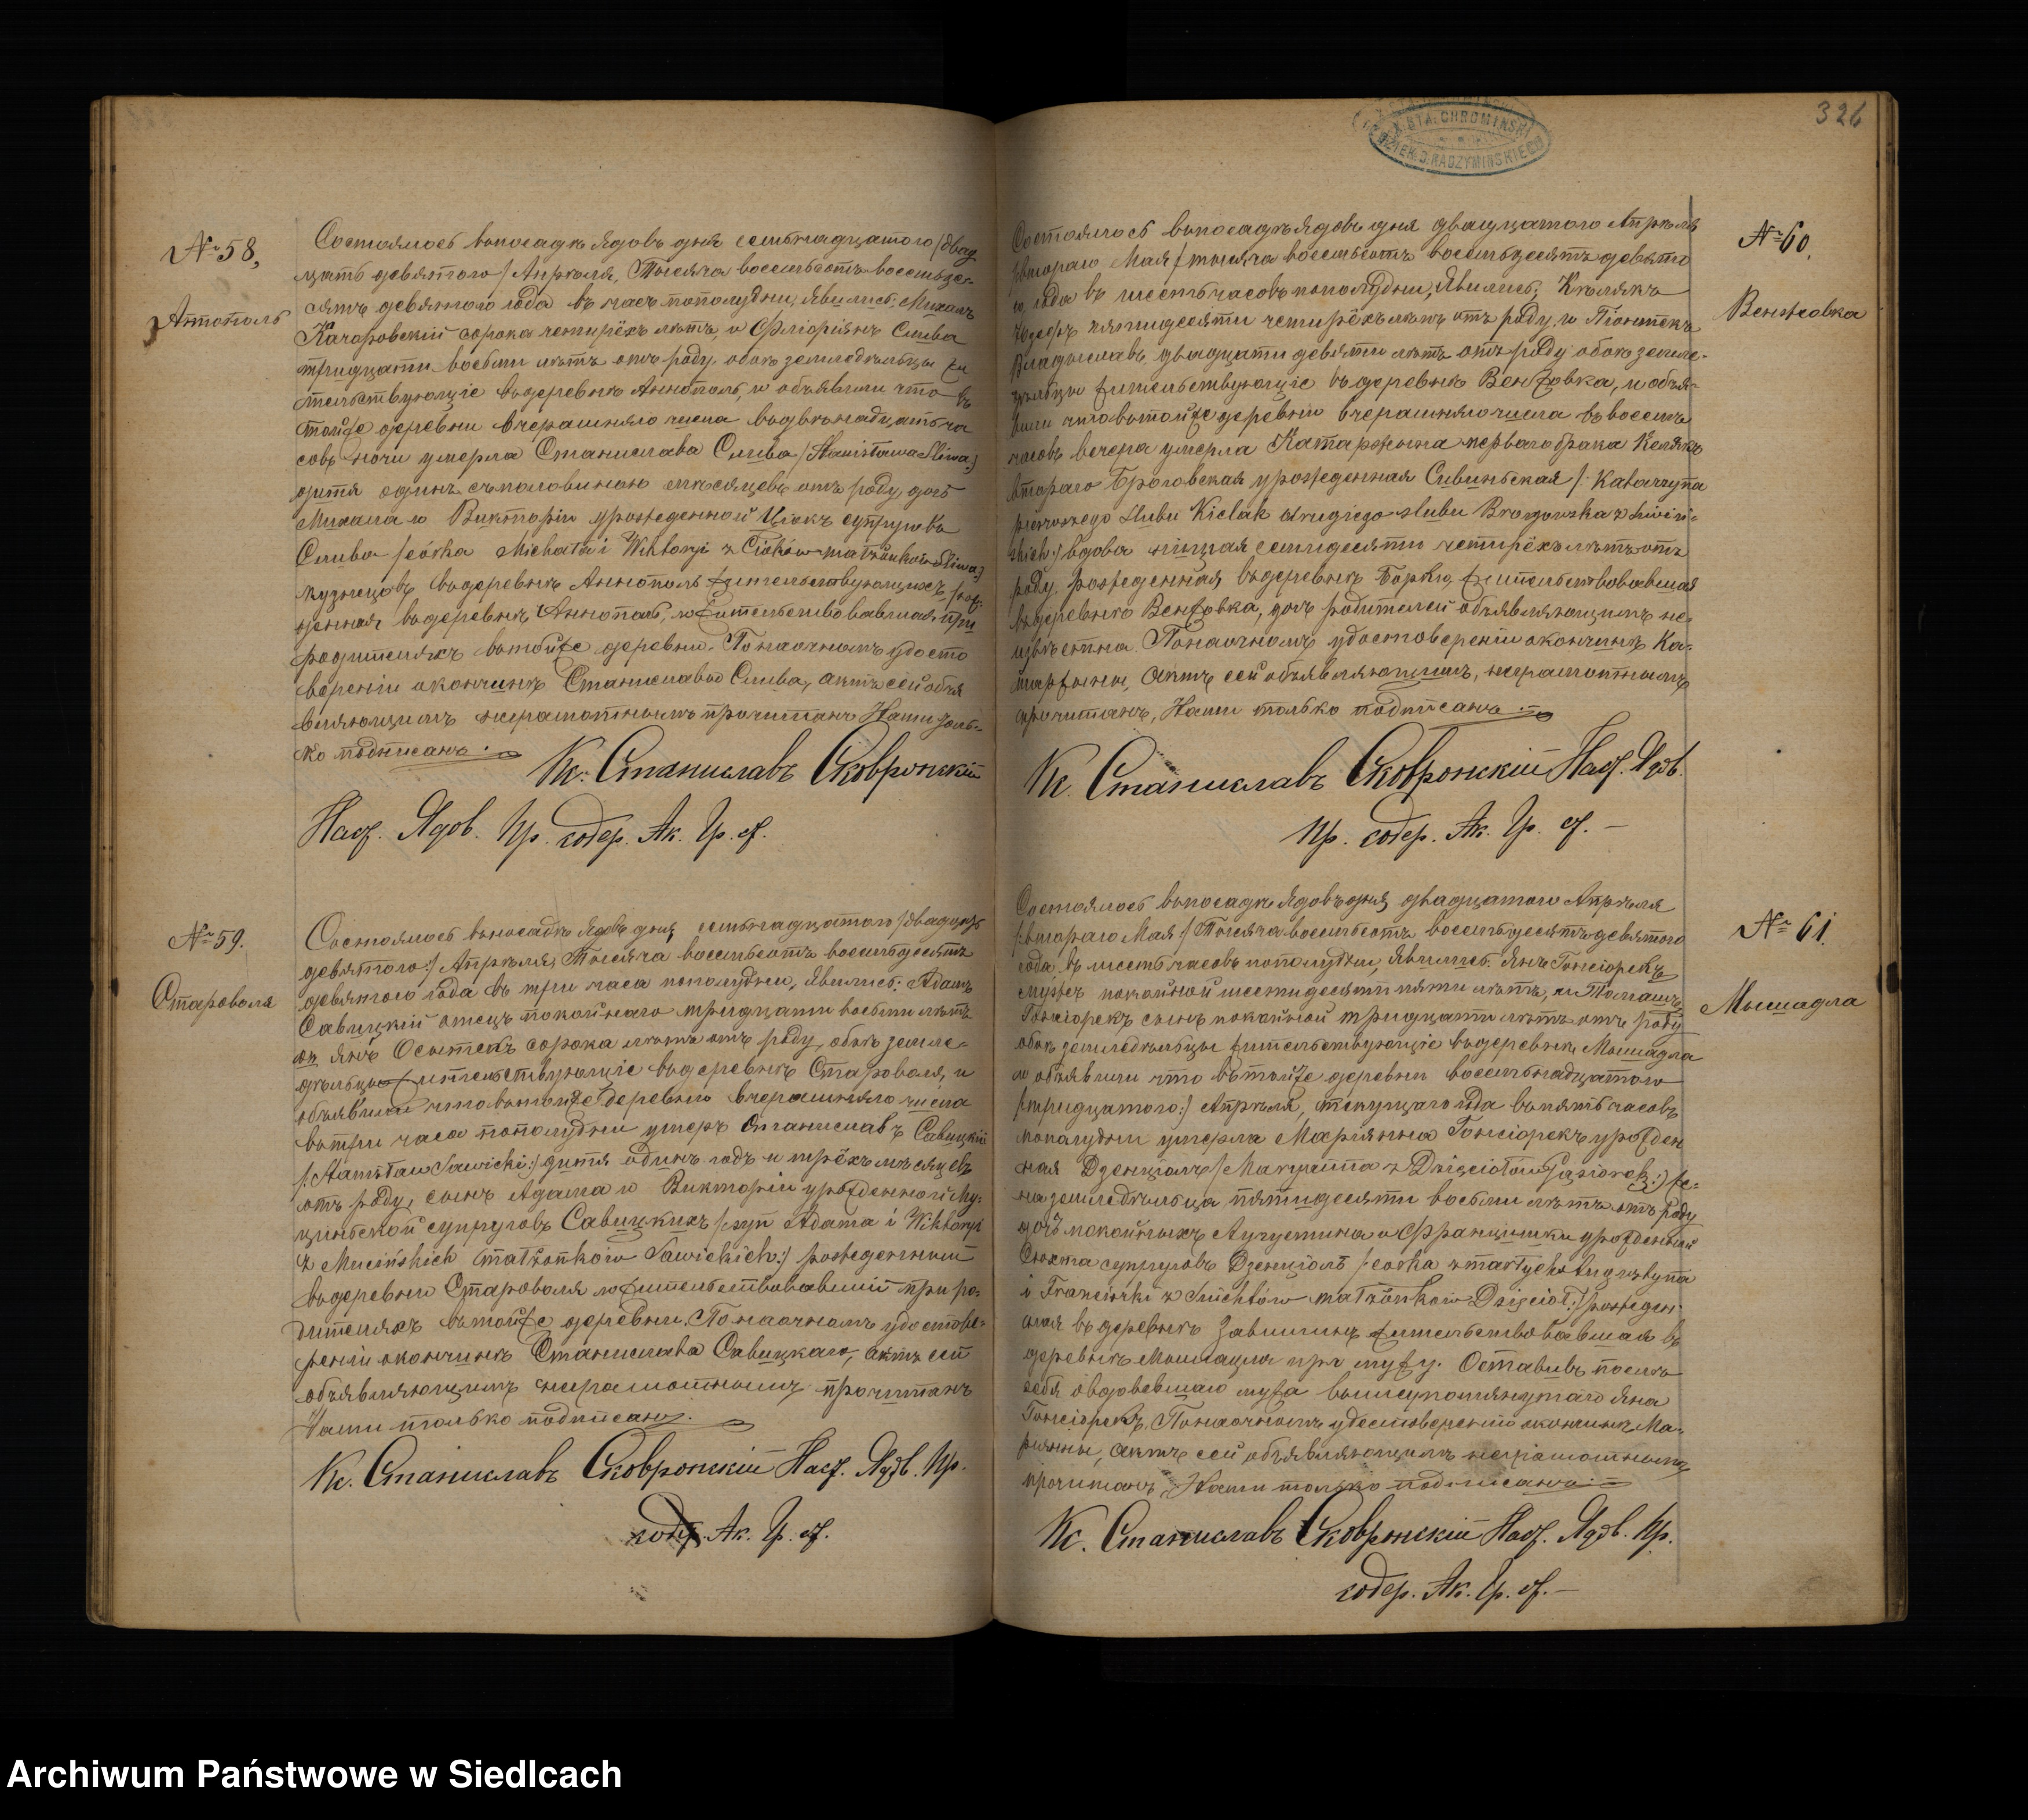 № 58,
Антополь
Состоялось в посадѣ Ядовъ дня семьнадцатого /двад
цать девятого/ Апрѣля, Тысяча восемьсотъ восемьде-
сятъ девятого года въ часъ пополудни, Явились; Михалъ
Качоровскій сорока четырёхъ лѣтъ, и Флоріянъ Слива
тридцати восьми лѣтъ отъ роду, обою земледѣльцы жи
тельствующіе въ деревнѣ Аннополь, и объявили что въ
тойже деревни вчерашняго числа въ двѣнадцать ча
совъ ночи умерла Станислава Слива /Stanisława Śliwa:/
дитя одинъ съ половиною мѣсяцевъ отъ роду, дочь
Михала и Викторіи урожденной Цiокъ супруговъ
Слива /córka Michała i Wiktoryi z Cioków małżonków Śliwa:/
кузнецовъ въ деревнѣ Аннополь жительствующихъ, рож-
денная въ деревнѣ Аннополь, и жительствовавшая при
родителяхъ въ тойже деревни. По наочномъ удосто
вереніи о кончинѣ Станиславы Слива, актъ сей объя
вляющимъ неграмотнымъ прочитанъ Нами толь-
ко подписанъ.
Кс. Станиславъ Сковронскій
Наст. Ядов. Пр. содер. Ак. Гр. С.
№ 59.
Староволя
Состоялось в посадѣ Ядовъ дня семьнадцатого /двадцать
девятого:/ Апрѣля, Тысяча восемьсотъ восемьдесятъ
девятого года въ три часа пополудни, Явились: Адамъ
Савицкій отецъ покойнаго тридцати восьми лѣтъ
и Янъ Осытекъ сорока лѣтъ отъ роду, обою земле-
дѣльцы жительствующіе въ деревнѣ Староволя, и
объявили что въ тойже деревню вчерашняго числа
въ три часа пополудни умеръ Станиславъ Савицкій
/:Stanisław Sawicki:/ дитя одинъ годъ и трёхъ мѣсяцевъ
отъ роду, сынъ Адама и Викторіи урожденной Му-
циньской супруговъ Савицкихъ /syn Adama i Wiktoryi
z Mucińskich małżonków Sawickich:/ рожденный
въ деревни Староволя и жительствовавшій при ро-
дителяхъ въ тойже деревни. По наочномъ удостове-
реніи о кончинѣ Станислава Савицкаго, актъ сей
объявляющимъ неграмотнымъ прочитанъ
Нами только подписанъ.
Кс. Станиславъ Сковронскій Наст. Ядов. Пр.
содер. Ак. Гр. С.
326
X. STA. CHROMIŃSKI
DZIEK. D. RADZYMIŃSKIEGO
№ 60.
Венжовка
Состоялось в посадѣ Ядовъ дня двадцатого Апрѣля
/второго Мая/ тысяча восемьсотъ восемьдесятъ девято
го года въ шесть часовъ пополудни, Явились, Кѣлякъ
пятидесяти четырёхъ лѣтъ отъ роду, и Піонтекъ
Владыславъ двадцати девяти лѣтъ отъ роду обою земле-
дѣльцы жительствующіе въ деревнѣ Венжовка, и объя-
вили что въ тойже деревни вчерашняго числа въ восемь
часовъ вечера умерла Катаржына первого брака Келякъ
второго Брозовская урожденная Сивиньская /:Katarzyna
pierwszego ślubu Kielak drugiego ślubu Brozowska z Siwiń-
skich:/ вдова нищая семидесяти четырёхъ лѣтъ отъ
роду, рожденная въ деревнѣ Борки, жительствовавшая
въ деревнѣ Венжовка, дочь родителей объявляющимъ не-
извѣстна. По наочномъ удостовереніи о кончинѣ Ка-
таржыны, актъ сей объявляющимъ, неграмотнымъ
прочитанъ, Нами только подписанъ
Кс. Станиславъ Сковронскій Наст. Ядов.
Пр. содер. Ак. Гр. С.
№ 61.
Мышадла
Состоялось в посадѣ Ядовъ дня двадцатого Апрѣля
/:второго Мая/ Тысяча восемьсотъ восемьдесятъ девятого
года въ шесть часовъ пополудни, Явились: Янъ Гонсіорекъ
мужъ покойной шестидесяти пяти лѣтъ, и Томашъ
Гонсіорекъ сынъ покойной тридцати лѣтъ отъ роду
обою земледѣльцы жительствующіе въ деревнѣ Мышадла
и объявили что въ тойже деревни восемьнадцатого
/тридцатого:/ Апрѣля, текущаго года въ пять часовъ
пополудни умерла Маріянна Гонсіорекъ урожден
ная Дзенціолъ /Maryanna z Dzięciołów Gąsiorek:/ же-
на земледѣльца пятидесяти восьми лѣтъ отъ роду
дочь покойныхъ Аугустина и Францишки урожденной
Снохта супруговъ Дзенціолъ /córka zmarłych Augustyna
i Franciszki z Snichtów małżonków Dzięcioł:/ рожден-
ная въ деревнѣ Завишинъ жительствовавшая въ
деревнѣ Мышадла при мужу. Оставивъ послѣ
себя овдовевшаго мужа вышеупомянутаго Яна
Гонсіорекъ. По наочномъ удостовереніи о кончинѣ Ма-
рянны, актъ сей объявляющимъ неграмотнымъ
прочитанъ, Нами только подписанъ
Кс. Станиславъ Сковронскій Наст. Ядов. Пр.
содер. Ак. Гр. С.
Archiwum Państwowe w Siedlcach